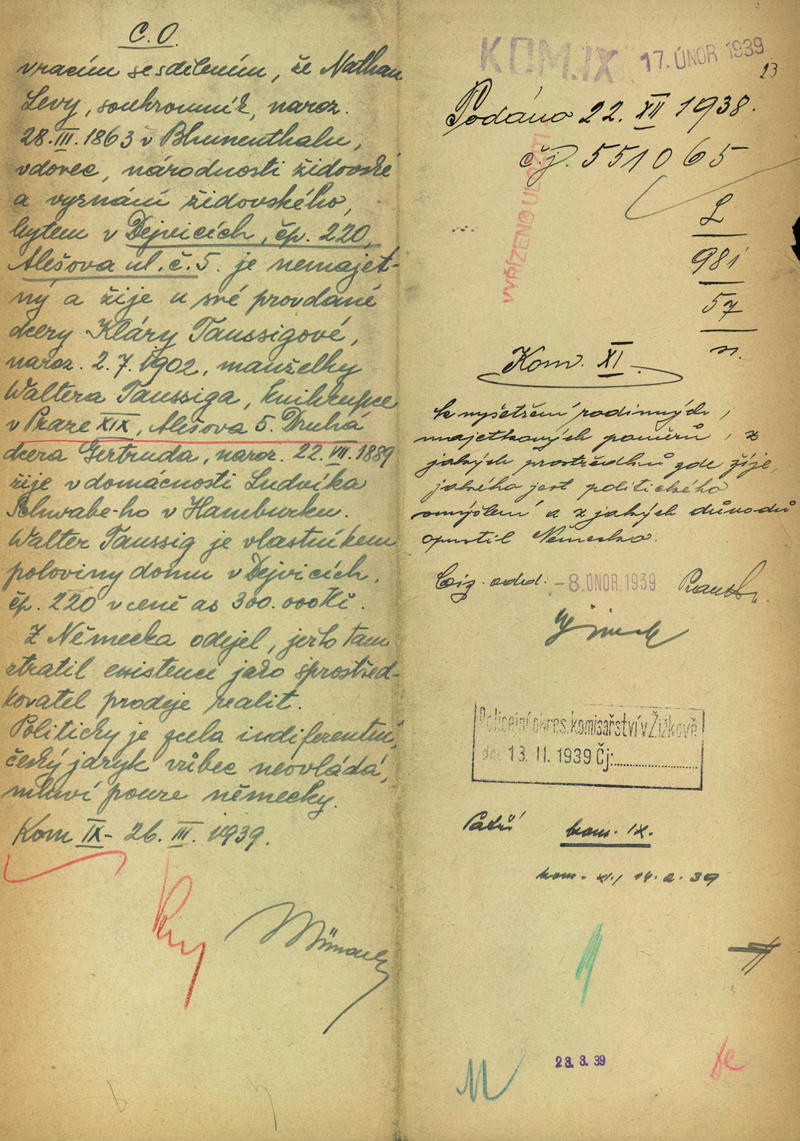 C.O.
vracím se sdělením, že Nathan
Levy, soukromník, naroz.
28. III. 1863 v Blumenthalu,
vdovec, národnosti židovské
a vyznání židovského,
bytem v Dejvicích, čp. 220,
Alešova ul. č. 5. je nemajet-
ný a žije u své provdané
dcery Kláry Taussigové,
naroz. 2. 7. 1902, manželky
Waltera Taussiga, knihkupce
v Praze XIX, Alešova 5. Druhá
dcera Gertruda, naroz. 22. VII. 1889
žije v domácnosti Ludvíka
Schwabe-ho v Hamburku.
Walter Taussig je vlastníkem
poloviny domu v Dejvicích,
čp. 220 v ceně as 300.000 Kč.
Z Německa odejel, ježto tam
ztratil existenci jako sprostřed-
kovatel prodeje realit.
Politicky je zcela indiferentní,
český jazyk vůbec neovládá,
mluví pouze německy.
Kom IX - 26. III. 1939.
KOM. IX 17. ÚNOR 1939
23
Podáno 22. XII 1938.
č.j. 551065
VYŘÍZENO ULOŽITI
L
981
57
n.
Kom. XI.
k vyšetření rodinných,
majetkových poměrů, z
jakých prostředků zde žije,
jakého jest politického
smýšlení a z jakých důvodů
opustil Německo.
Ciz. odd. -8. ÚNOR 1939
Policejní okres. komisařství v Žižkově
dne 13. II. 1939 Čj:
Patří kom. IX.
kom. XI, 14. 2. 39
28. 3. 39